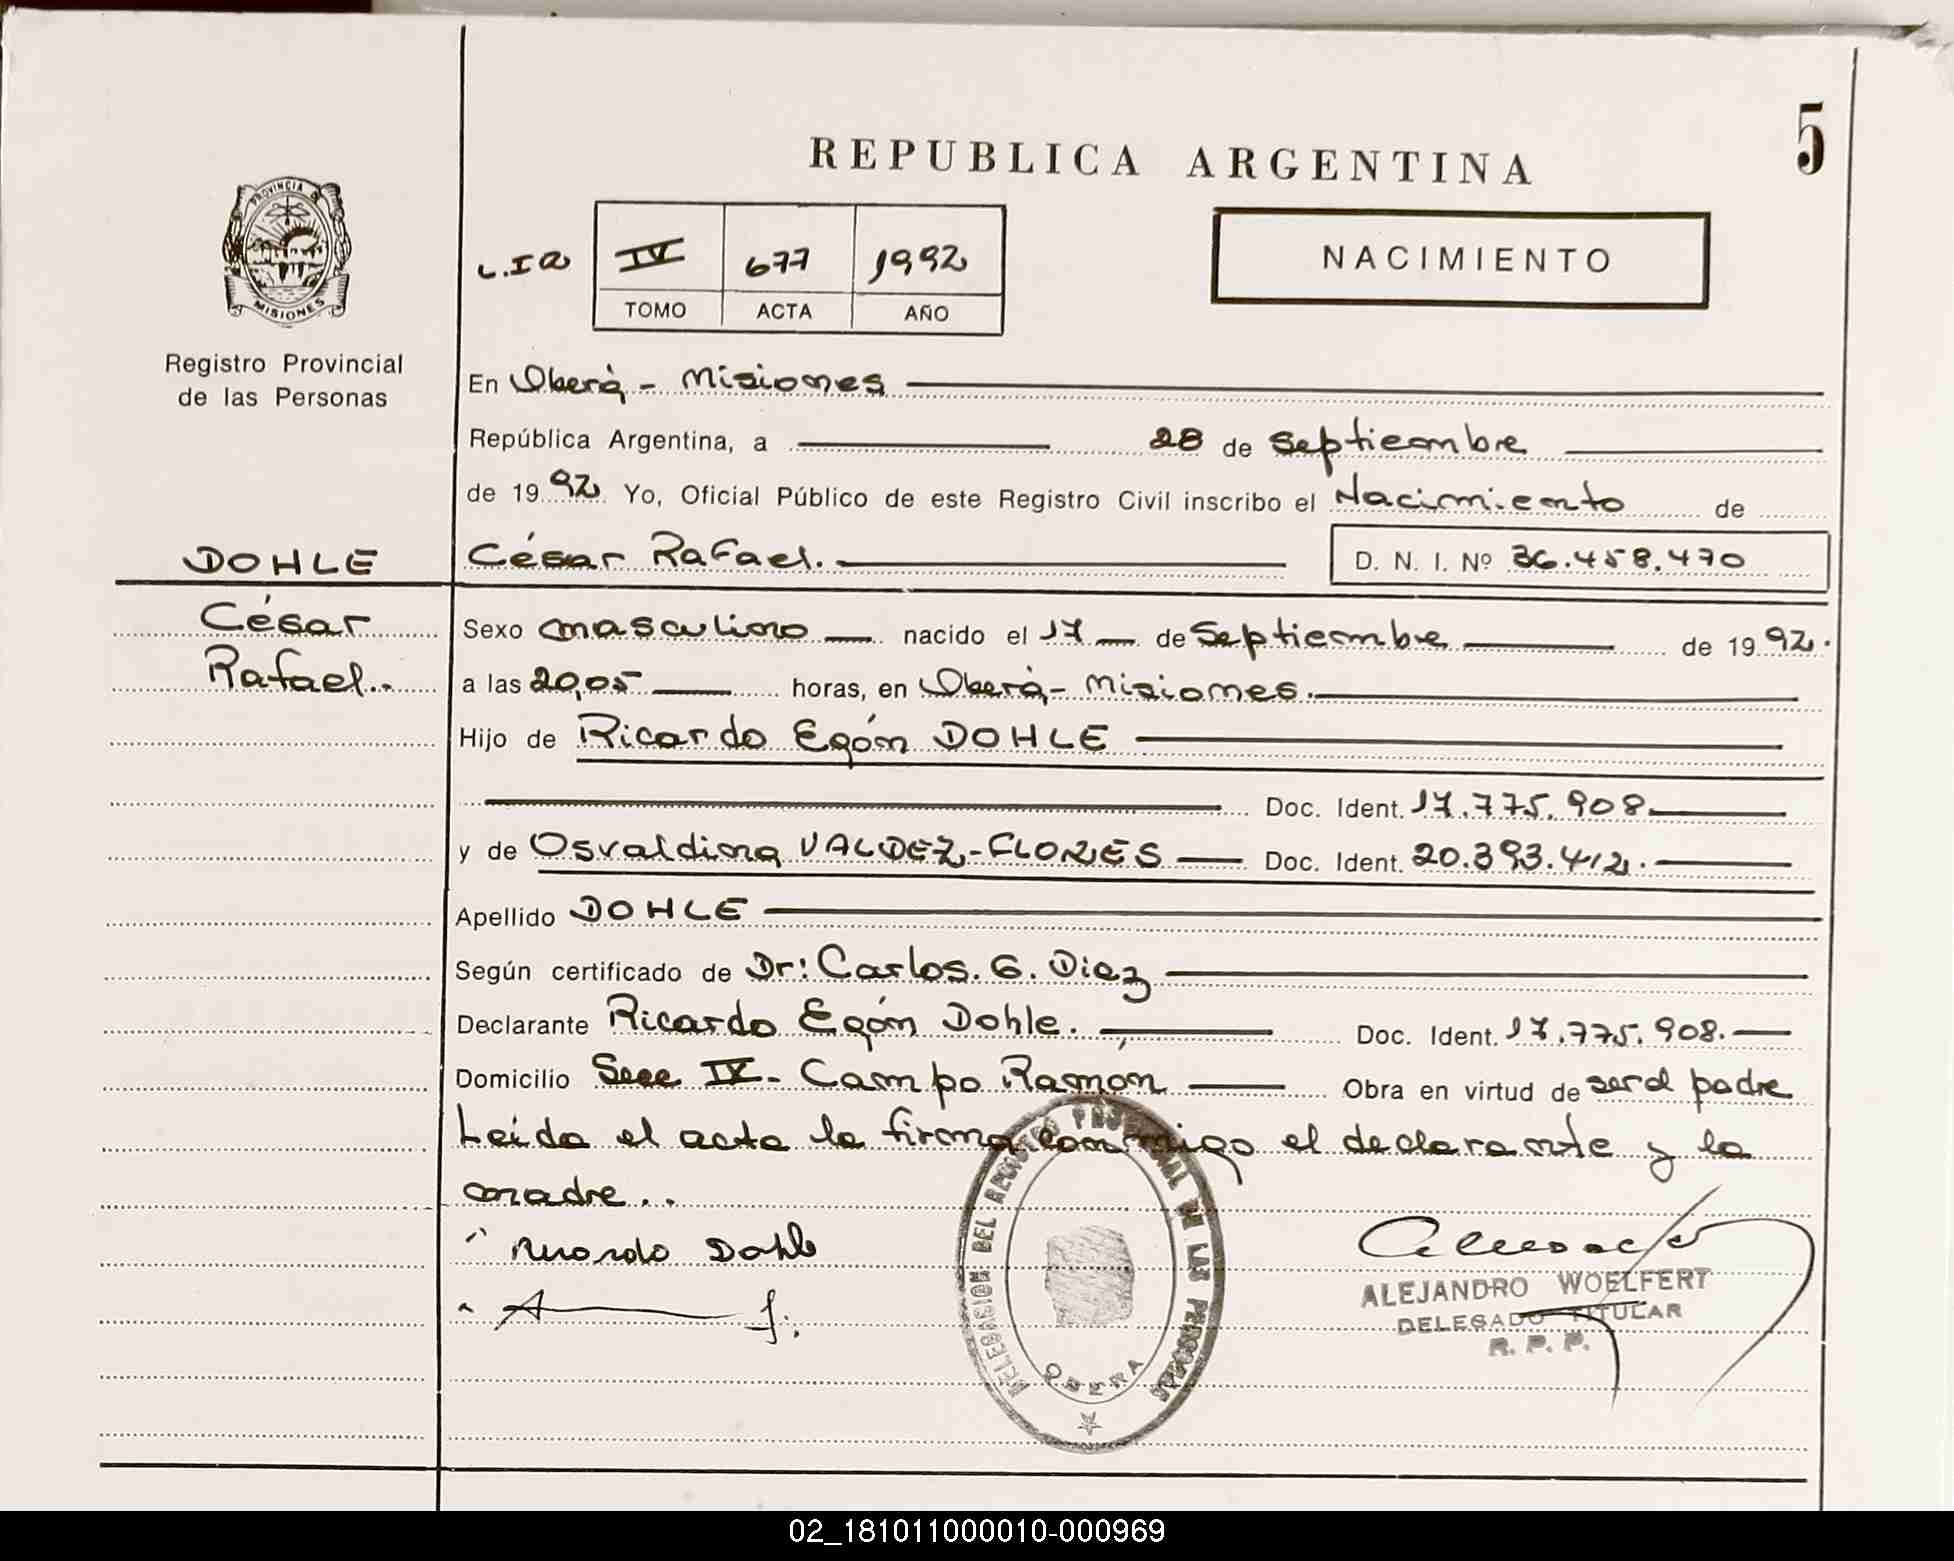 5
REPUBLICA ARGENTINA
PROVINCIA DE
MISIONES
Registro Provincial
de las Personas
L.I a
IV 677 1992
TOMO ACTA AÑO
NACIMIENTO
En Oberá - Misiones
República Argentina, a 28 de Septiembre
de 1992 Yo, Oficial Público de este Registro Civil inscribo el Nacimiento de
DOHLE César Rafael. D. N. I. Nº 36.458.470
César
Rafael..
Sexo masculino nacido el 17 de Septiembre de 1992.
a las 20,05 horas, en Oberá - Misiones.
Hijo de Ricardo Egón DOHLE
Doc. Ident. 17.775.908
y de Osvaldina VALDEZ-FLORES Doc. Ident. 20.393.412.
Apellido DOHLE
Según certificado de Dr: Carlos. G. Diez
Declarante Ricardo Egón Dohle. Doc. Ident. 17.775.908.
Domicilio Secc IV - Campo Ramón Obra en virtud de ser el padre
Leida el acta la firma conmigo el declarante y la
madre..
Ricardo Dohle
DELEGACION DEL REGISTRO PROVINCIAL DE LAS PERSONAS
OBERA
ALEJANDRO WOELFERT
DELEGADO TITULAR
R. P. P.
02_181011000010-000969